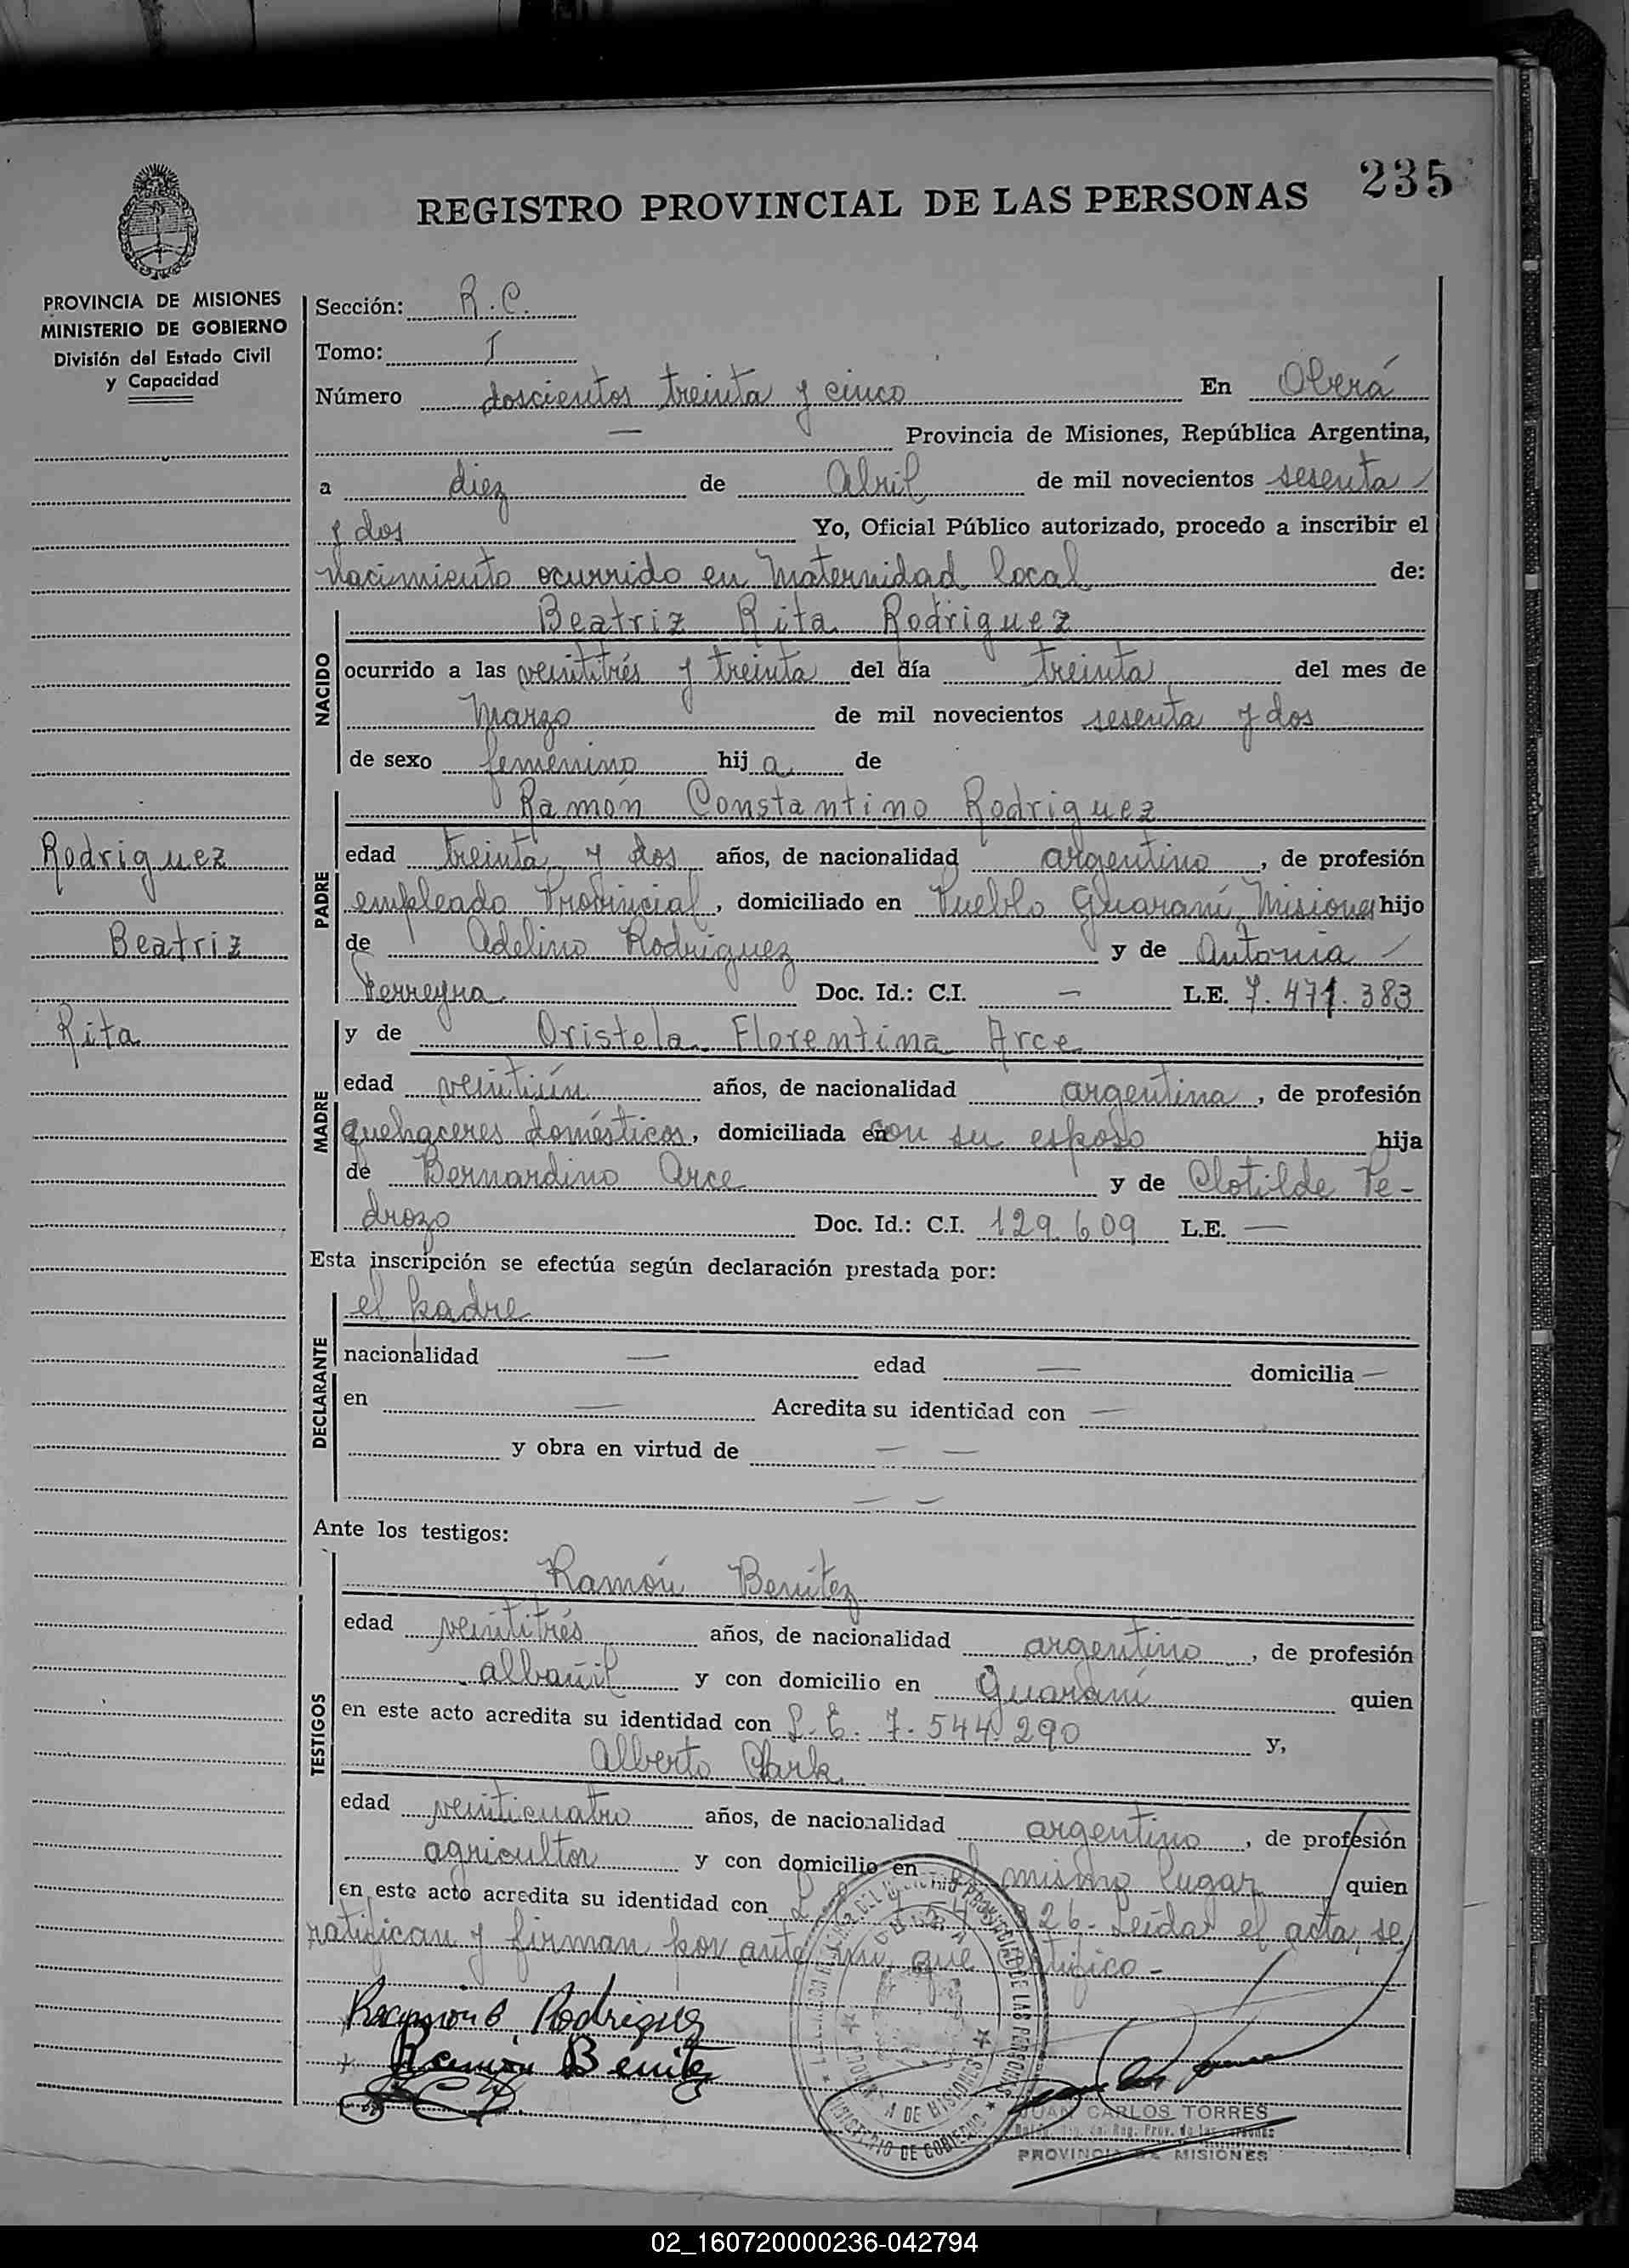 235
REGISTRO PROVINCIAL DE LAS PERSONAS
PROVINCIA DE MISIONES
MINISTERIO DE GOBIERNO
División del Estado Civil
y Capacidad
Sección: R.C.
Tomo: I
Número doscientos treinta y cinco En Oberá
— Provincia de Misiones, República Argentina,
a diez de Abril de mil novecientos sesenta
y dos Yo, Oficial Público autorizado, procedo a inscribir el
nacimiento ocurrido en Maternidad local de:
NACIDO
Beatriz Rita Rodriguez
ocurrido a las veintitrés y treinta del día treinta del mes de
Marzo de mil novecientos sesenta y dos
de sexo femenino hij a de
PADRE
Ramón Constantino Rodriguez
Rodriguez
edad treinta y dos años, de nacionalidad argentino, de profesión
empleado Provincial, domiciliado en Pueblo Guaraní, Misiones hijo
Beatriz
de Adelino Rodriguez y de Antonia
Ferreyra Doc. Id.: C.I. — L.E. 7.471.383
Rita
MADRE
y de Oristela Florentina Arce
edad veintiún años, de nacionalidad argentina, de profesión
quehaceres domésticos, domiciliada en con su esposo hija
de Bernardino Arce y de Clotilde Pe-
drozo Doc. Id.: C.I. 129.609 L.E. —
Esta inscripción se efectúa según declaración prestada por:
DECLARANTE
el padre
nacionalidad — edad — domicilia —
en — Acredita su identidad con —
y obra en virtud de — —
— —
Ante los testigos:
TESTIGOS
Ramón Benítez
edad veintitrés años, de nacionalidad argentino, de profesión
albañil y con domicilio en Guaraní quien
en este acto acredita su identidad con L.E. 7.544.290 y,
Alberto Clark
edad veinticuatro años, de nacionalidad argentino, de profesión
agricultor y con domicilio en el mismo lugar quien
en este acto acredita su identidad con 26.- Leída el acta, se
ratifican y firman por ante mi, que certifico -
Ramón C. Rodriguez
Ramón Benitez
PROVINCIAL DE LAS PERSONAS
DE MISIONES
MINISTERIO DE GOBIERNO
JUAN CARLOS TORRES
Reg. Prov. de las Personas
PROVINCIA DE MISIONES
02_160720000236-042794